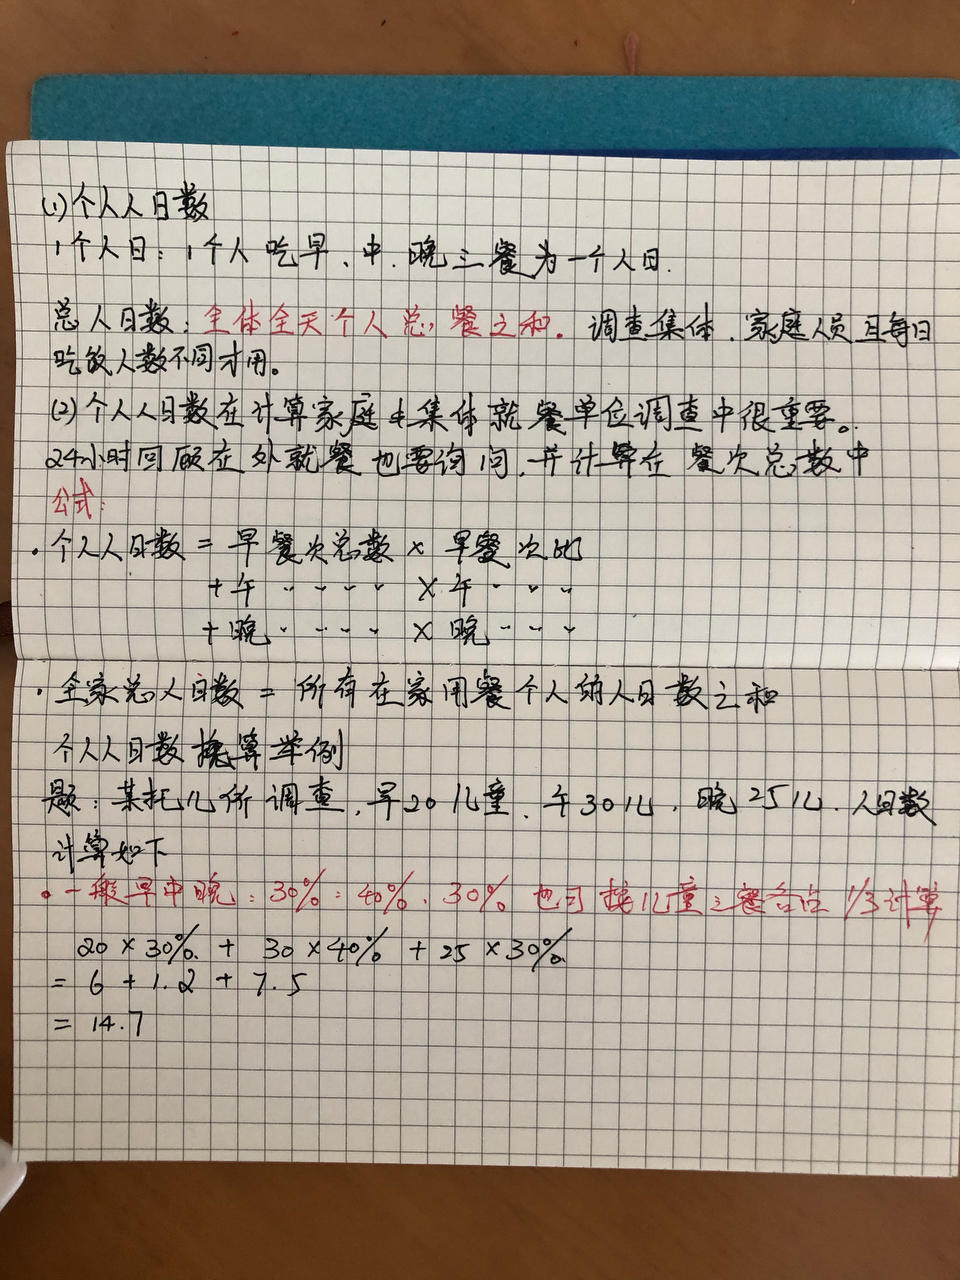 (1)个人人日数
1个人日：1个人吃早、中、晚三餐为一个人日.
总人日数：全体全天个人总餐之和。调查集体、家庭人员且每日
吃饭人数不同才用。
(2)个人人日数在计算家庭和集体就餐单位调查中很重要。
24小时回顾在外就餐也要询问,并计算在餐次总数中
公式:
·个人人日数 = 早餐次总数 × 早餐次比
+午 ˇ ˇ ˇ ˇ × 午 ˇ ˇ ˇ
+晚 ˇ ˇ ˇ ˇ × 晚 ˇ ˇ ˇ
·全家总人日数 = 所有在家用餐个人的人日数之和
个人人日数换算举例
题：某托儿所调查,早20儿童、午30儿、晚25儿、人日数
计算如下
·一般早中晚：30%：40%、30% 也可按儿童三餐各占1/3计算
20×30% + 30×40% + 25×30%
= 6 + 1.2 + 7.5
= 14.7